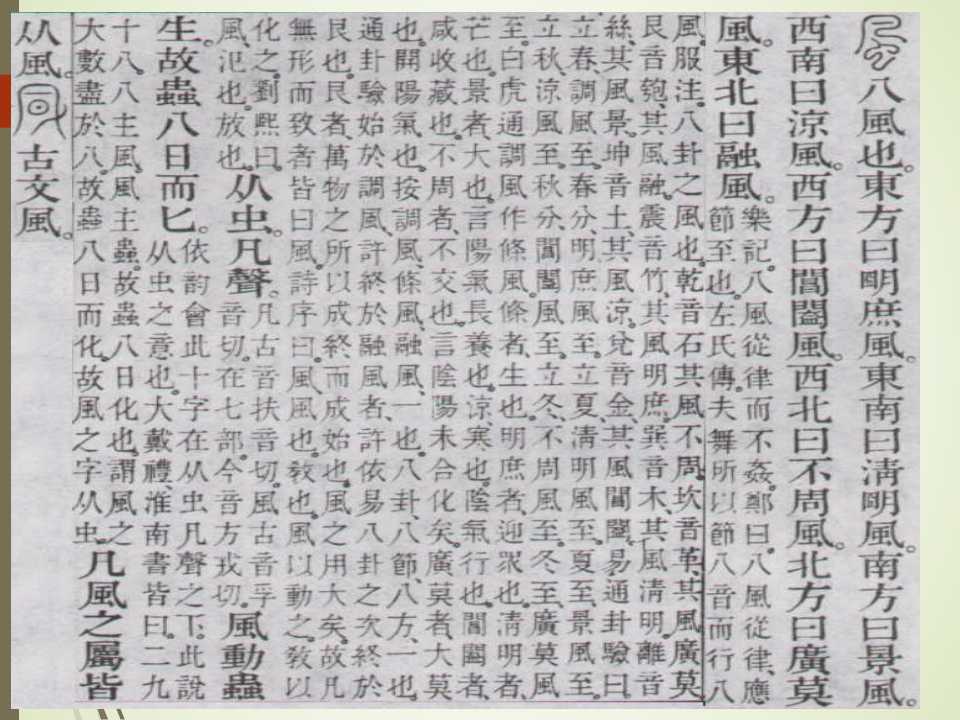 八風也。東方曰朙庶風。東南曰清朙風。南方曰景風。
西南曰涼風。西方曰閶闔風。西北曰不周風。北方曰廣莫
風。東北曰融風。樂記。八風從律而不姦。鄭曰。八風從律、應
節至也。左氏傳。夫舞所以節八音而行八
風。服注。八卦之風也。乾音石、其風不周。坎音革、其風廣莫。
艮音匏、其風融。震音竹、其風明庶。巽音木、其風清明。離音
絲、其風景。坤音土、其風涼。兌音金、其風閶闔。易通卦驗曰。
立春、調風至。春分、明庶風至。立夏、清明風至。夏至、景風至。
立秋、涼風至。秋分、閶闔風至。立冬、不周風至。冬至、廣莫風
至。白虎通調風作條風。條者、生也。明庶者、迎眾也。清明者、
芒也。景者、大也。言陽氣長養也。涼、寒也。陰氣行也。閶闔者、
咸收藏也。不周者、不交也。言陰陽未合化矣。廣莫者、大莫
也。開陽氣也。按調風、條風、融風、一也。八卦、八節、八方、一也。
通卦驗始於調風、許終於融風者、許依易八卦之次終於
艮也。艮者、萬物之所以成終而成始也。風之用大矣。故凡
無形而致者皆曰風。詩序曰。風、風也、敎也。風以動之。敎以
化之。劉熙曰。
風、氾也。放也。从虫。凡聲。凡古音扶音切。風古音孚
音切。在七部。今音方戎切。風動蟲
生。故蟲八日而匕。依韵會此十字在从虫凡聲之下。此說
从虫之意也。大戴禮、淮南書皆曰。二九
十八。八主風。風主蟲。故蟲八日化也。謂風之
大數盡於八。故蟲八日而化。故風之字从虫。凡風之屬皆
从風。古文風。